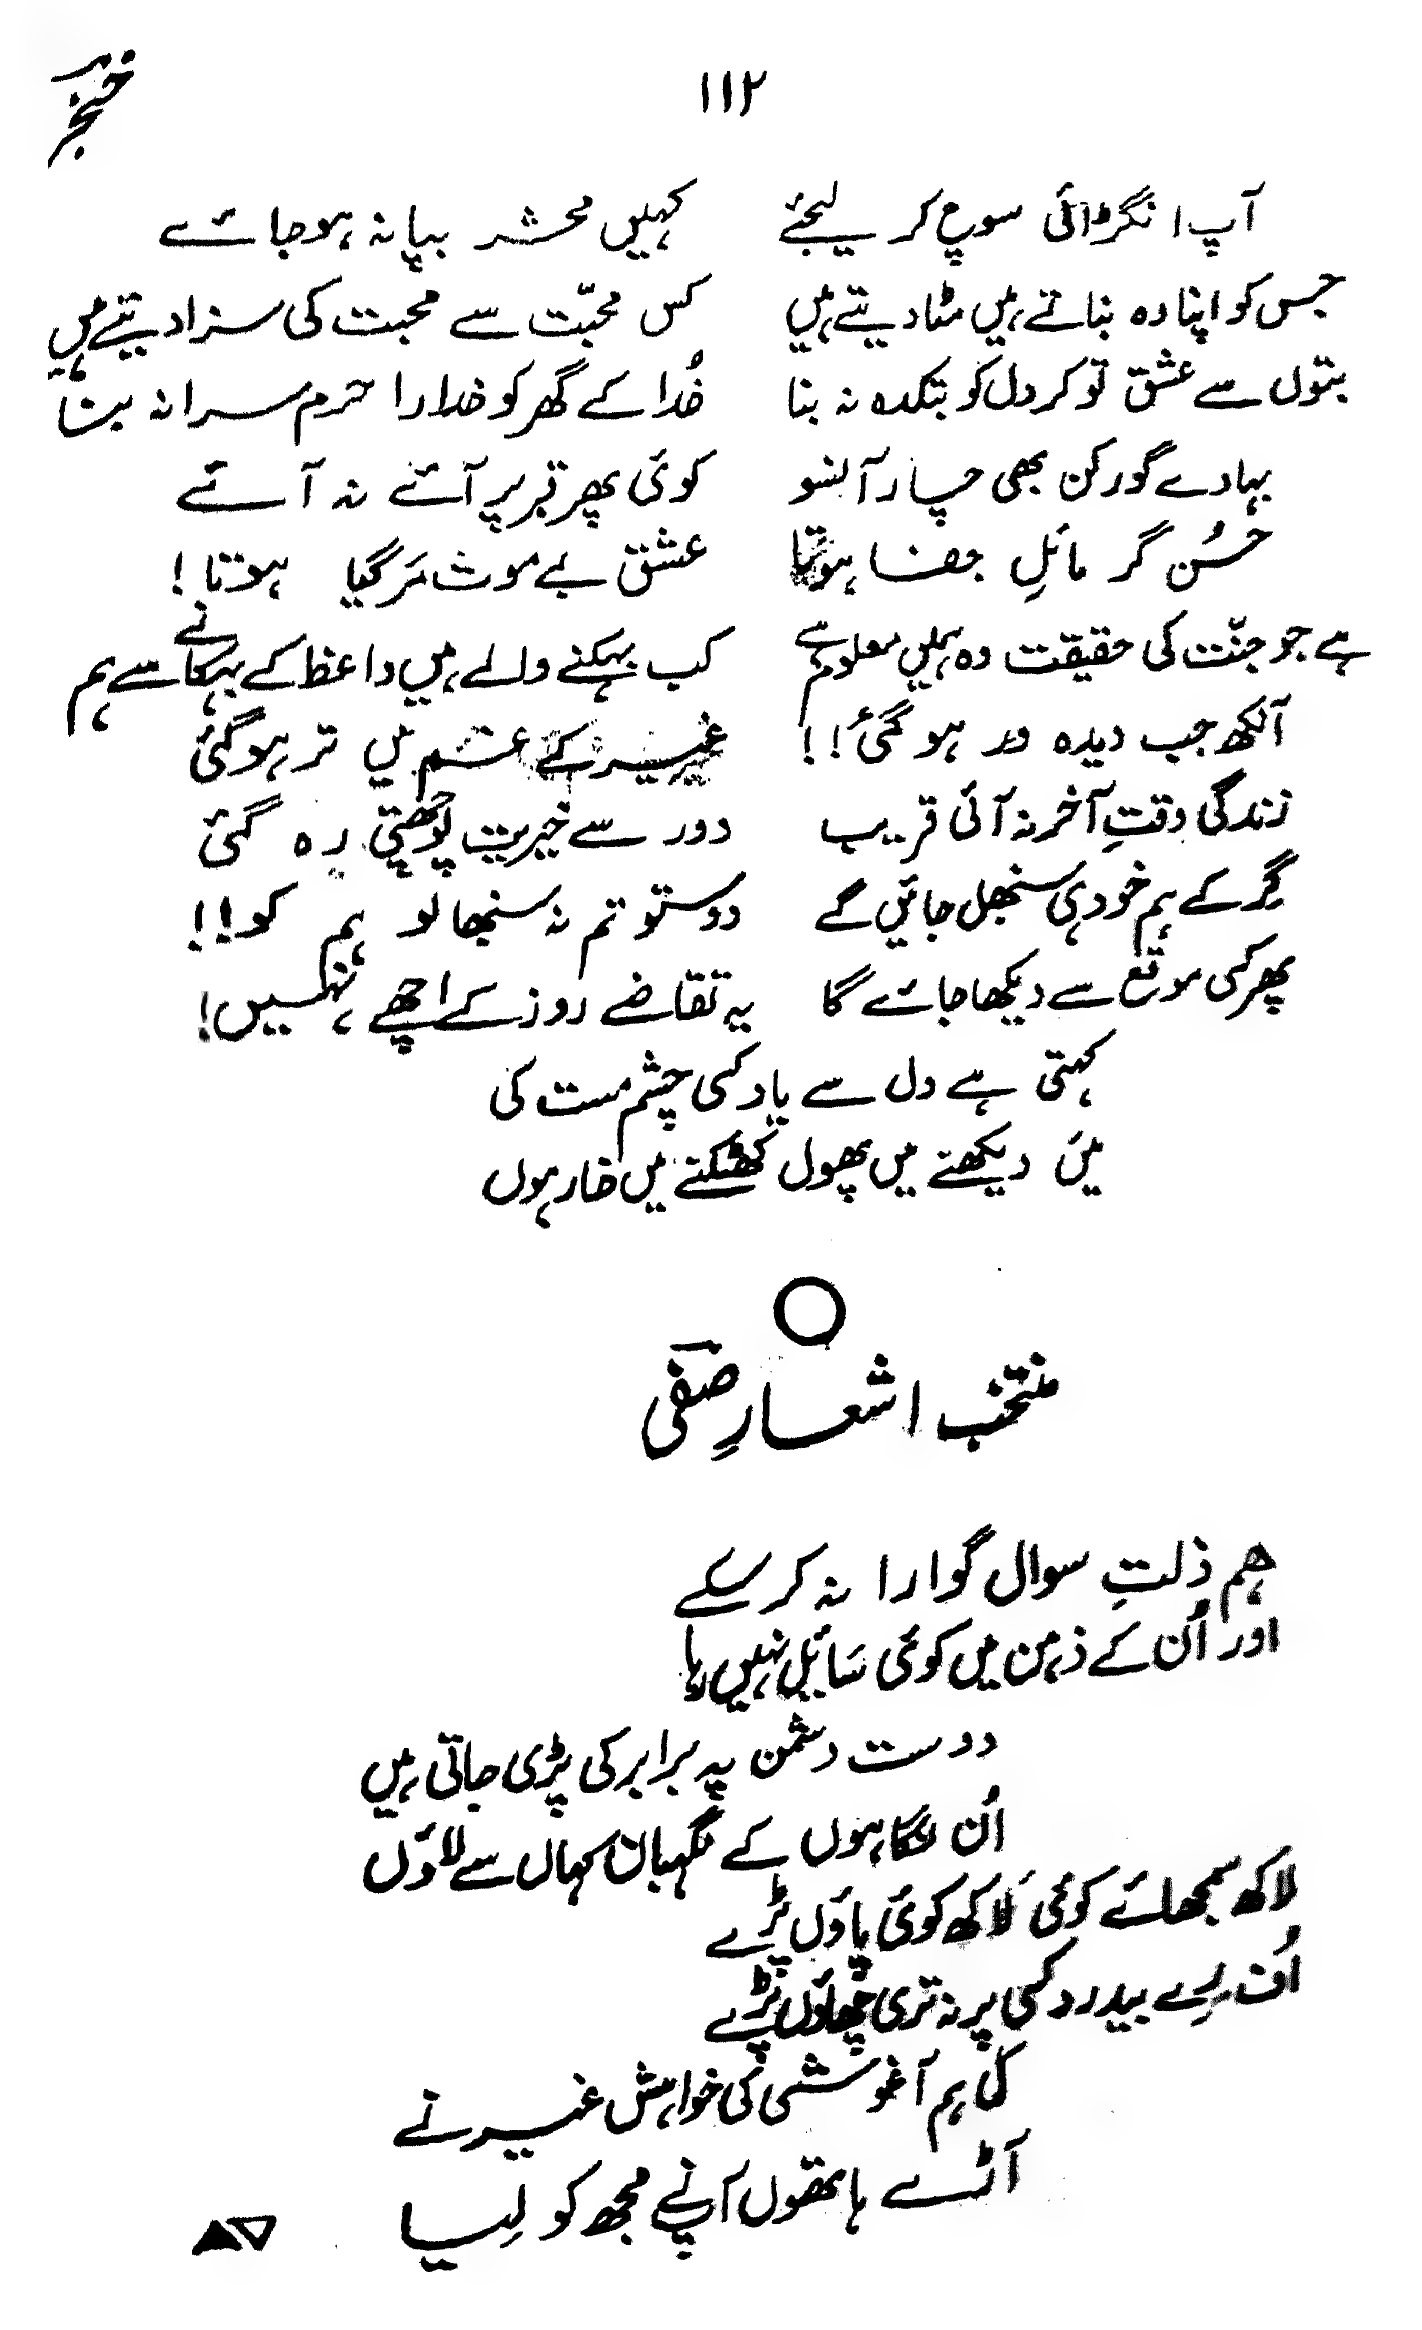 خنجر
۱۱۲
آپ انگڑائی سوچ کر لیجئے کہیں محشر بپا نہ ہو جائے
جس کو اپنا وہ بناتے ہیں مٹا دیتے ہیں کس محبّت سے محبت کی سزا دیتے ہیں
بتوں سے عشق تو کر دل کو بتکدہ نہ بنا خُدا کے گھر کو خدارا حرم سرا نہ بنا
بہادے گورکن بھی چار آنسو کوئی پھر قبر پر آئے نہ آئے
حُسن گر مائلِ جفا ہوتا عشق بے موت مَر گیا ہوتا !
ہے جو جنّت کی حقیقت وہ ہمیں معلوم ہے کب بہکنے والے ہیں واعظ کے بہکانے سے ہم
آنکھ جب دیدہ ور ہو گئی !! غیر کے غم میں تر ہوگئی
زندگی وقتِ آخر نہ آئی قریب دور سے خیریت پوچھتی رہ گئی
گِر کے ہم خود ہی سنبھل جائیں گے دوستو تم نہ سنبھالو ہم کو !!
پھر کسی موقع سے دیکھا جائے گا یہ تقاضے روز کے اچھے نہیں !
کہتی ہے دل سے یاد کسی چشم مست کی
میں دیکھنے میں پھول کھٹکنے میں خار ہوں
منتخب اشعارِ صفی
ہم ذلتِ سوال گوارا نہ کر سکے
اور اُن کے ذہن میں کوئی سَائل نہیں رہا
دوست دشمن پہ برابر کی پڑی جاتی ہیں
اُن نگاہوں کے نگہبان کہاں سے لاؤں
لاکھ سمجھائے کوئی لاکھ کوئی پاؤں پڑے
اُف رے بیدرد کسی پر نہ تری چھاؤں پڑے
کل ہم آغوشی کی خواہش غیر نے
آڑے ہاتھوں آپنے مجھ کو لِیا